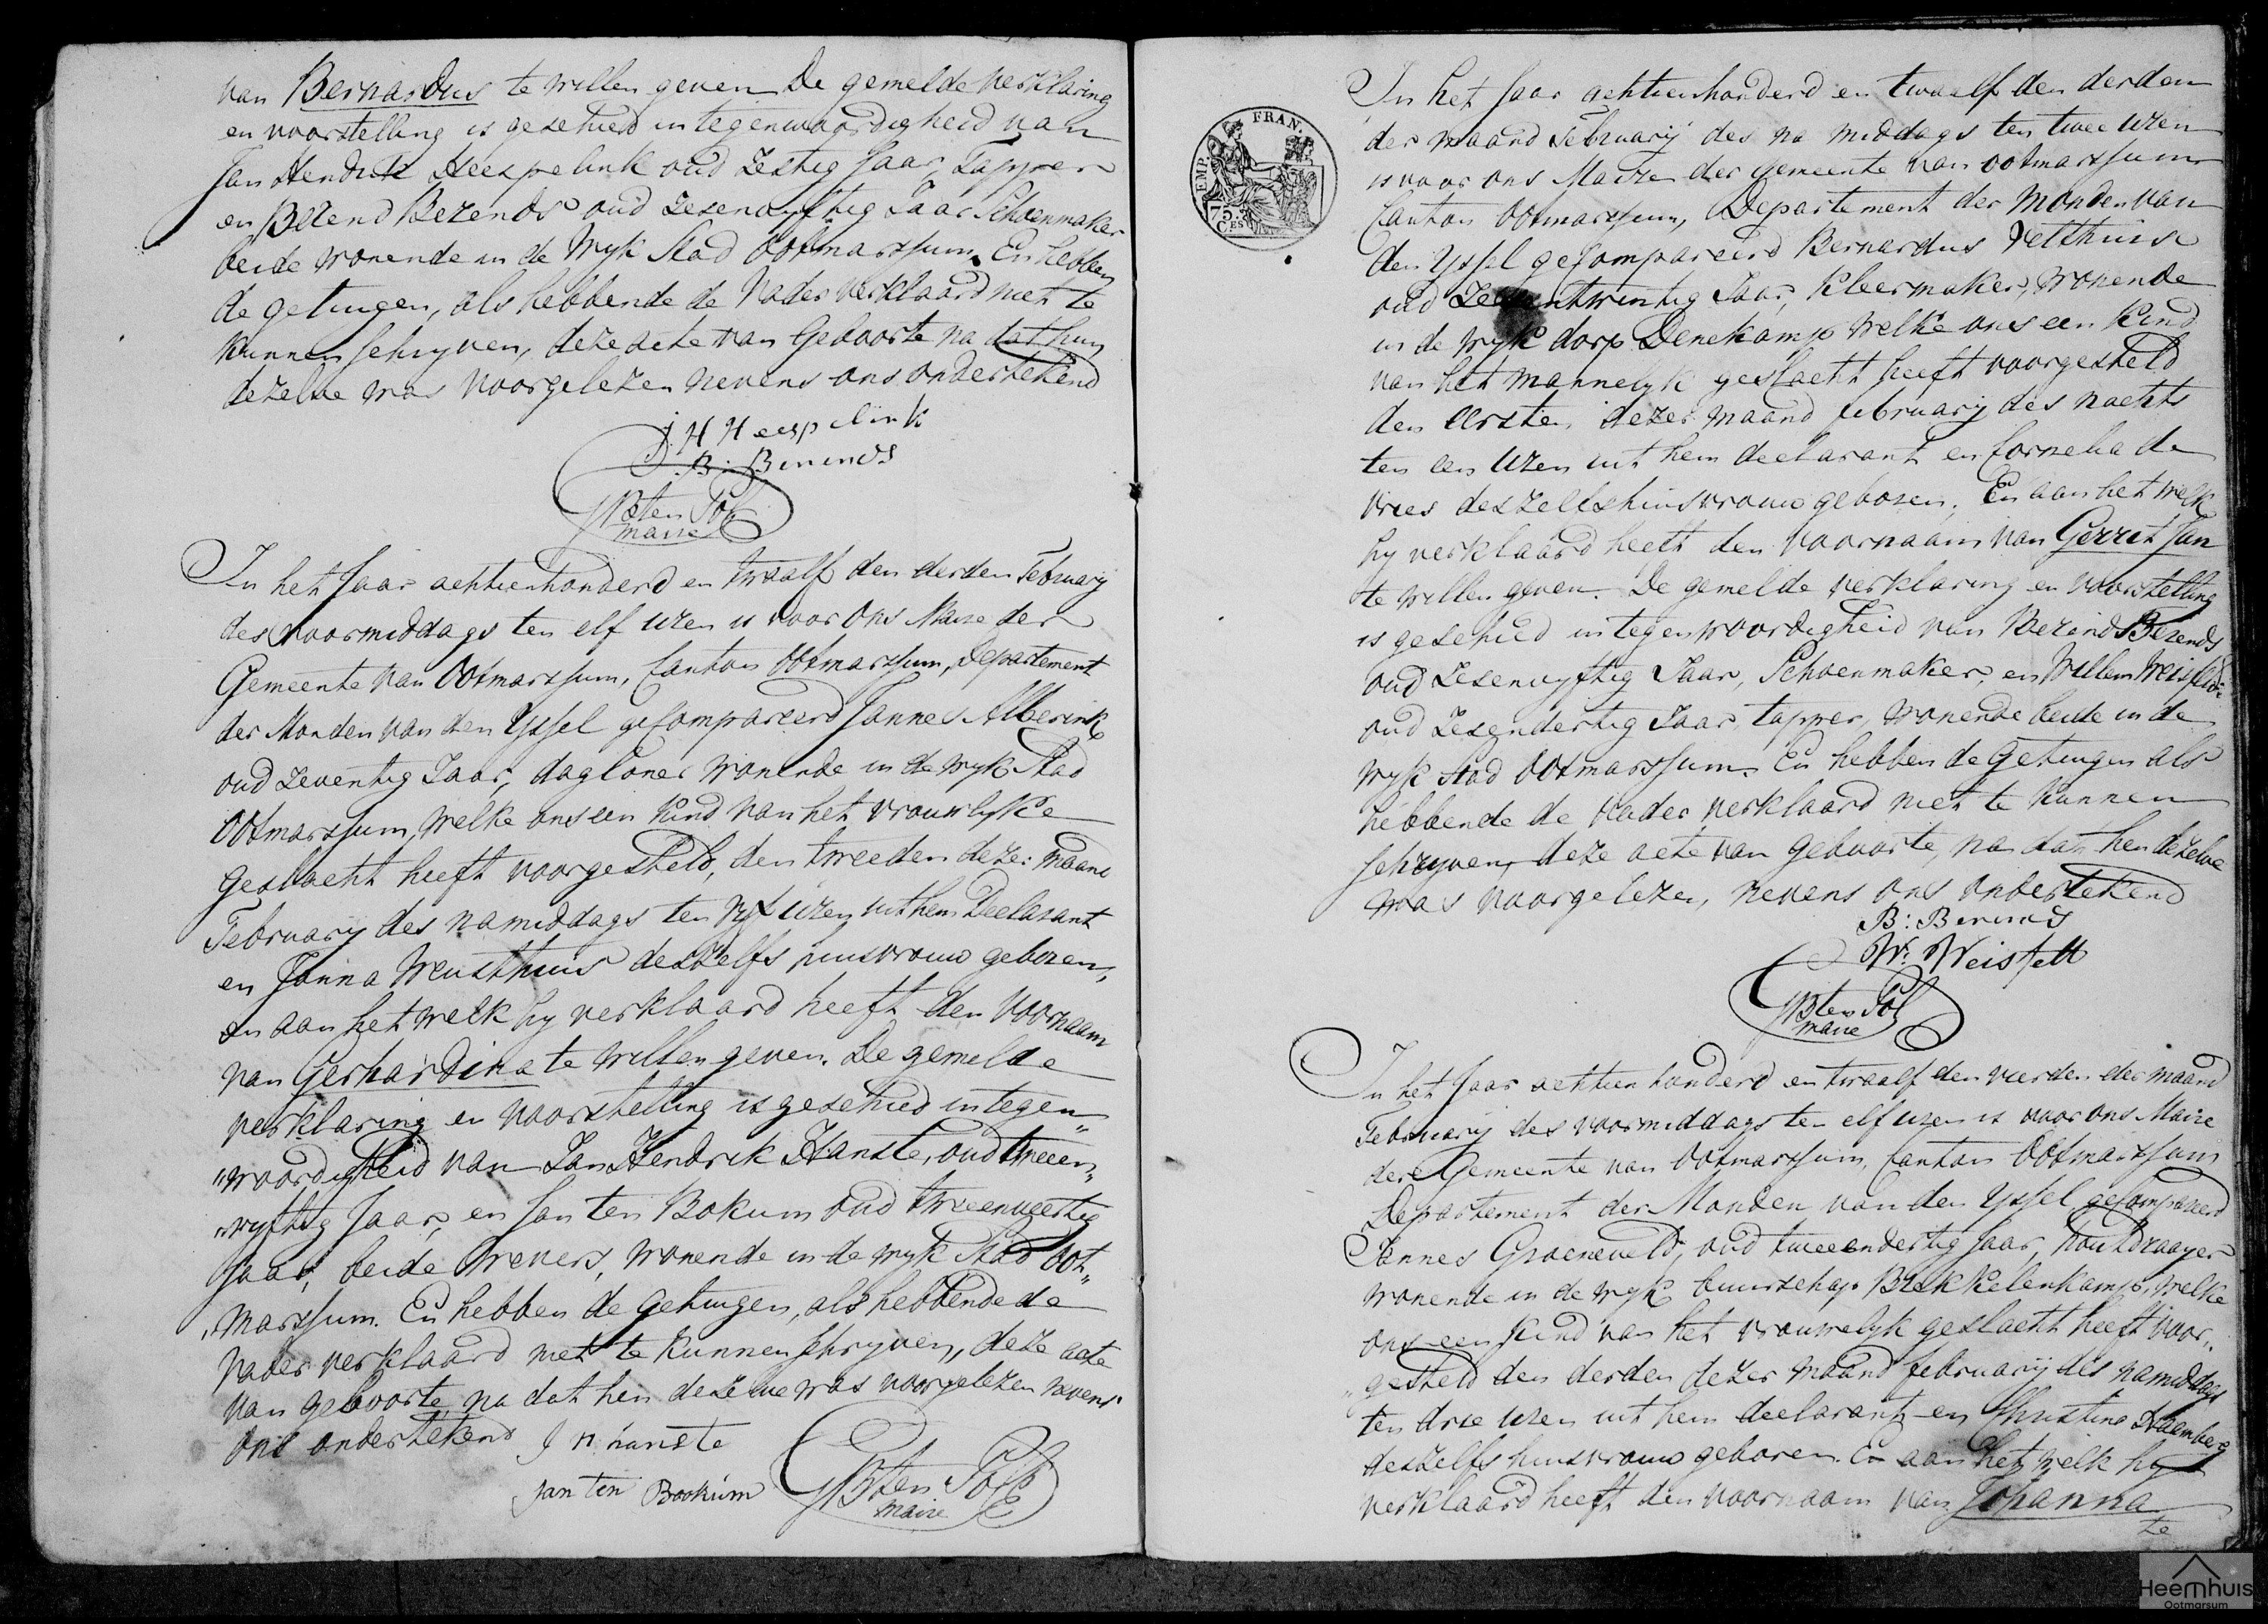 van Bernardus te willen geven De gemelde verklaring
en voorstelling is geschied in tegenwoordigheid van
Jan Hendrik Heespelink oud Zestig Jaar, Tapper
en Berend Berends oud Zesenvyftig Jaar Schoenmaker
beide wonende in de Wyk Stad Ootmarssum. En hebben
de getuigen, als hebbende de Vader verklaard niet te
kunnen schryven, deze acte van Geboorte na dat hun
dezelve was voorgelezen nevens ons ondertekend
J H Heespelink
B: Berends
ten Pol
maire
In het Jaar achttienhonderd en twaalf den derden February
des voormiddags ten elf uren is voor ons Maire der
Gemeente van Ootmarssum, Canton Ootmarssum, Departement
der Monden van den Yssel gecompareerd Jannes Alberink
oud Zeventig Jaar, dagloner wonende in de wyk Stad
Ootmarssum, welke ons een Kind van het vrouwlyke
Geslacht heeft voorgesteld, den tweeden dezer maand
February des namiddags ten vyf uren uit hem Declarant
en Janna Weusthuis deszelfs huisvrouw geboren,
en aan het welk hy verklaard heeft den Voornaam
van Gerhardina te willen geven. De gemelde
verklaring en voorstelling is geschied in tegen„
„woordigheid van Jan Hendrik Hanste, oud tweeen„
„vyftig Jaar, en Jan ten Bokum oud tweenveertig
Jaar, beide Wevers, wonende in de wyk Stad Oot„
„marssum. En hebben de getuigen, als hebbende de
Vader verklaard niet te kunnen schryven, deze acte
van geboorte, na dat hen dezelve was voorgelezen nevens
ons ondertekend J H hanste
Jan ten Bookum
ten Pol
maire
EMP. FRAN.
75.
CES
In het Jaar achttienhonderd en twaalf den derden
der maand February des na middags ten twee uren
is voor ons Maire der gemeente van ootmarssum
Canton Ootmarssum, Departement der Monden van
den Yssel gecompareerd Bernardus Velthuis
oud Jaar, Kleermaker, wonende
in de Wyk dorp Denekamp welke ons een Kind
van het mannelyk geslacht heeft voorgesteld
den Eersten dezer maand february des nachts
ten een Uren uit hem declarant en Cornelia de
Vries deszelfs huisvrouw geboren. En aan het welk
hy verklaard heeft den Voornaam van Gerrit Jan
te willen geven. De gemelde verklaring en voorstelling
is geschied in tegenwoordigheid van Berend Berends
oud Zesenvyftig Jaar, Schoenmaker, en Willem
oud Zesendertig Jaar, tapper, wonende beide in de
Wyk Stad Ootmarssum. En hebben de getuigen als
hebbende de Vader verklaard niet te kunnen
schryven, deze acte van geboorte, na dat hen dezelve
was voorgelezen, nevens ons ondertekend
B: Berends
W: Weisfelt
ten Pol
maire
In het Jaar achttienhonderd en twaalf den vierden der maand
February des voormiddags ten elf uren is voor ons Maire
der Gemeente van Ootmarssum, Canton Ootmarssum
Departement der Monden van den Yssel gecompareerd
Jannes Groeneveld, oud tweeendertig Jaar, houtdraayer
wonende in de wyk buurschap Brekkelenkamp, welke
ons een Kind van het vrouwelyk geslacht heeft voor„
„gesteld den derden dezer maand february des namiddags
ten drie uren uit hem declarant en Christina
deszelfs huisvrouw geboren. En aan het welk hy
verklaard heeft den voornaam van Johanna
te
Heemhuis
Ootmarsum